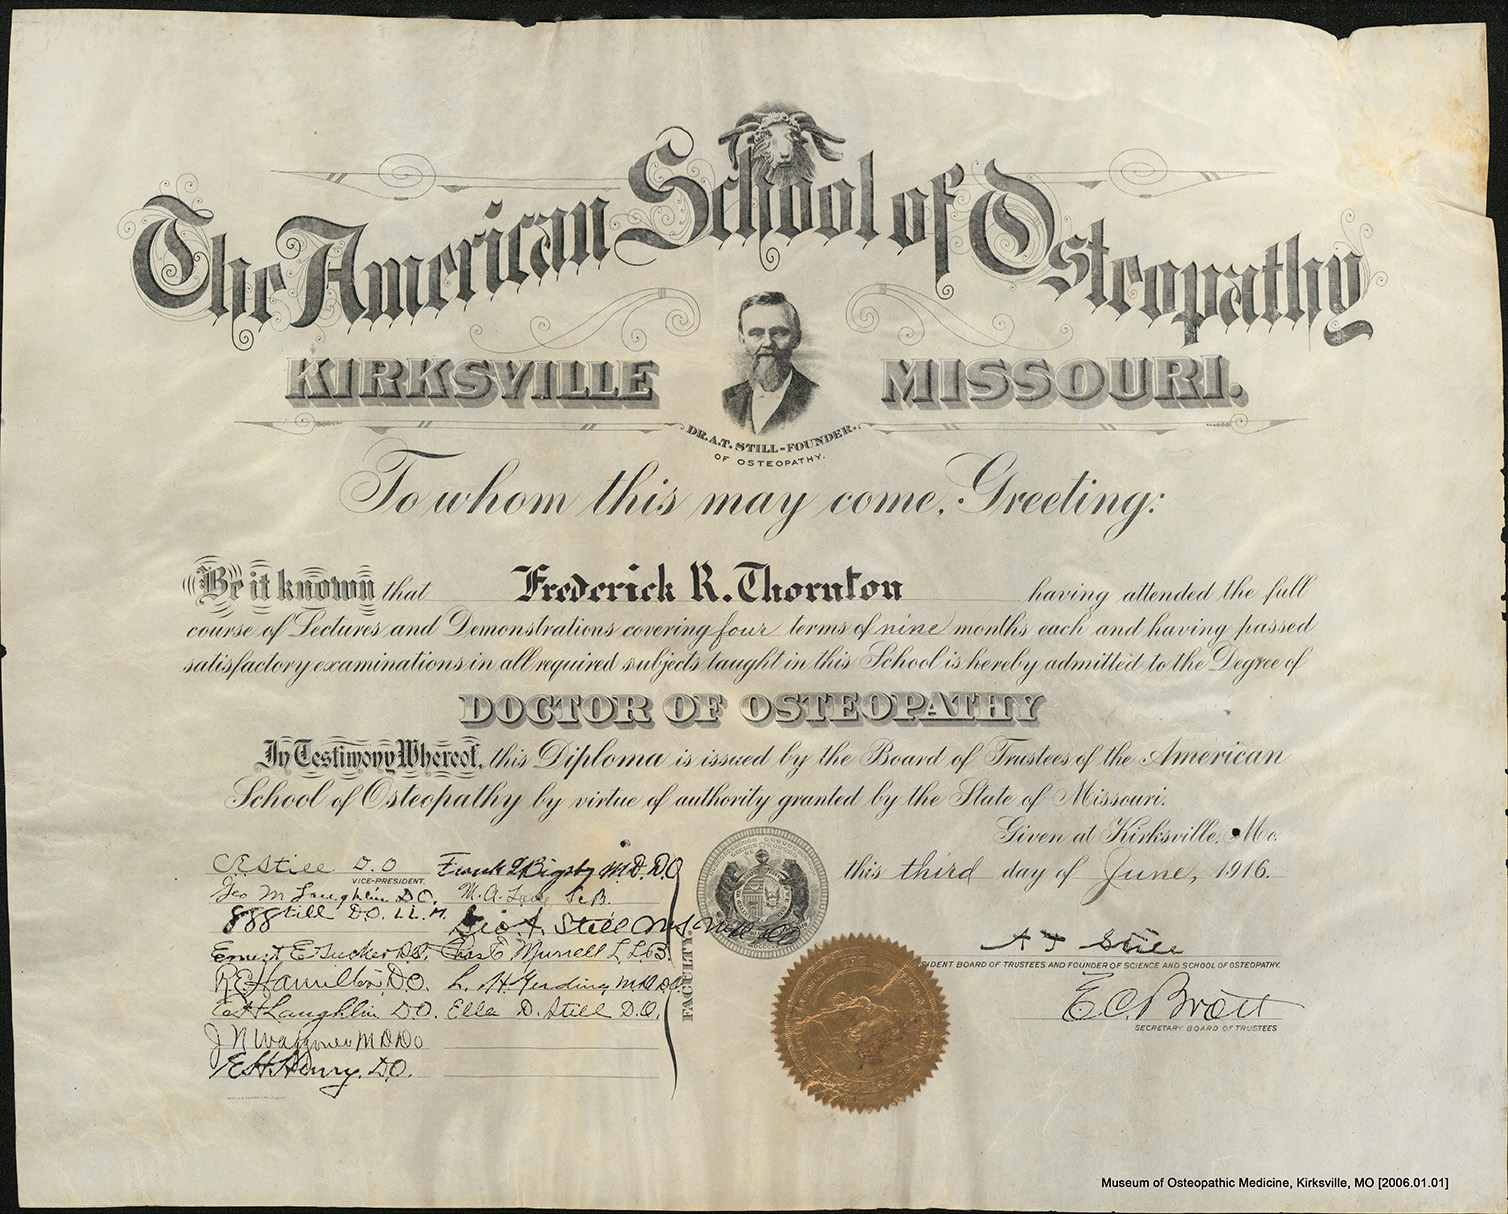 The American School of Osteopathy
KIRKSVILLE MISSOURI.
DR. A.T. STILL-FOUNDER
OF OSTEOPATHY.
To whom this may come, Greeting:
Be it known that Frederick R. Thornton having attended the full
course of Lectures and Demonstrations covering four terms of nine months each and having passed
satisfactory examinations in all required subjects taught in this School is hereby admitted to the Degree of
DOCTOR OF OSTEOPATHY
In Testimony Whereof, this Diploma is issued by the Board of Trustees of the American
School of Osteopathy by virtue of authority granted by the State of Missouri.
Given at Kirksville, Mo.
this third day of June, 1916.
C.E. Still D.O
VICE-PRESIDENT.
Geo M Laughlin D.O.
Still D.O. LL.M.
Ernest E. Tucker D.O.
R.E. Hamilton, D.O.
Laughlin D.O.
J N Waggoner M D D O
E.H. Henry, D.O.
Frank L Bigsby M.D. D.O
M.A. Sc.B.
Geo. A. Still M.S. M.D. D.O.
Chas E Murrell L.L.B.
L. H. M.D. D.O.
Ella D. Still D.O.
FACULTY.
A T Still
IDENT BOARD OF TRUSTEES AND FOUNDER OF SCIENCE AND SCHOOL OF OSTEOPATHY.
E.C. Brott
SECRETARY BOARD OF TRUSTEES
Museum of Osteopathic Medicine, Kirksville, MO [2006.01.01]